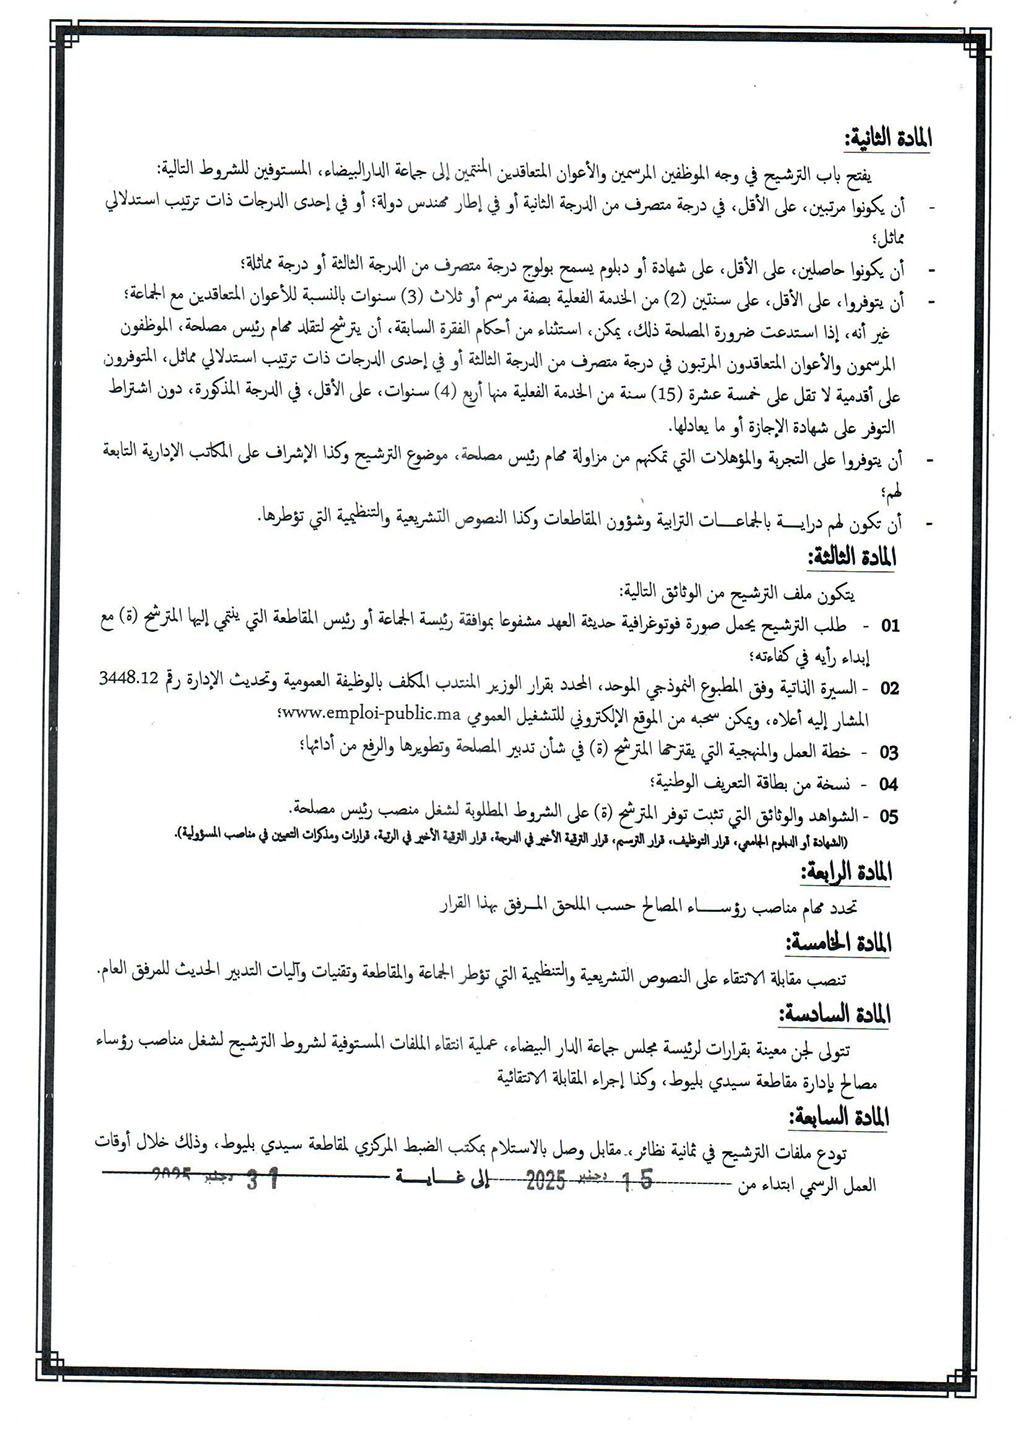 المادة الثانية:
يفتح باب الترشيح في وجه الموظفين المرسمين والأعوان المتعاقدين المنتمين إلى جماعة الدارالبيضاء، المستوفين للشروط التالية:
- أن يكونوا مرتبين، على الأقل، في درجة متصرف من الدرجة الثانية أو في إطار مهندس دولة؛ أو في إحدى الدرجات ذات ترتيب استدلالي
مماثل؛
- أن يكونوا حاصلين، على الأقل، على شهادة أو دبلوم يسمح بولوج درجة متصرف من الدرجة الثالثة أو درجة مماثلة؛
- أن يتوفروا، على الأقل، على سنتين (2) من الخدمة الفعلية بصفة مرسم أو ثلاث (3) سنوات بالنسبة للأعوان المتعاقدين مع الجماعة؛
غير أنه، إذا استدعت ضرورة المصلحة ذلك، يمكن، استثناء من أحكام الفقرة السابقة، أن يترشح لتقلد مهام رئيس مصلحة، الموظفون
المرسمون والأعوان المتعاقدون المرتبون في درجة متصرف من الدرجة الثالثة أو في إحدى الدرجات ذات ترتيب استدلالي مماثل، المتوفرون
على أقدمية لا تقل على خمسة عشرة (15) سنة من الخدمة الفعلية منها أربع (4) سنوات، على الأقل، في الدرجة المذكورة، دون اشتراط
التوفر على شهادة الإجازة أو ما يعادلها.
- أن يتوفروا على التجربة والمؤهلات التي تمكنهم من مزاولة مهام رئيس مصلحة، موضوع الترشيح وكذا الإشراف على المكاتب الإدارية التابعة
لهم؛
- أن تكون لهم درايـــة بالجماعـــات الترابية وشؤون المقاطعات وكذا النصوص التشريعية والتنظيمية التي تؤطرها.
المادة الثالثة:
يتكون ملف الترشيح من الوثائق التالية:
01 - طلب الترشيح يحمل صورة فوتوغرافية حديثة العهد مشفوعا بموافقة رئيسة الجماعة أو رئيس المقاطعة التي ينتمي إليها المترشح (ة) مع
إبداء رأيه في كفاءته؛
02 - السيرة الذاتية وفق المطبوع النموذجي الموحد، المحدد بقرار الوزير المنتدب المكلف بالوظيفة العمومية وتحديث الإدارة رقم 3448.12
المشار إليه أعلاه، ويمكن سحبه من الموقع الإلكتروني للتشغيل العمومي www.emploi-public.ma؛
03 - خطة العمل والمنهجية التي يقترحها المترشح (ة) في شأن تدبير المصلحة وتطويرها والرفع من أدائها؛
04 - نسخة من بطاقة التعريف الوطنية؛
05 - الشواهد والوثائق التي تثبت توفر المترشح (ة) على الشروط المطلوبة لشغل منصب رئيس مصلحة.
(الشهادة أو الدبلوم الجامعي، قرار التوظيف، قرار الترسيم، قرار الترقية الأخير في الدرجة، قرار الترقية الأخير في الرتبة، قرارات ومذكرات التعيين في مناصب المسؤولية).
المادة الرابعة:
تحدد مهام مناصب رؤســـاء المصالح حسب الملحق المــرفق بهذا القرار
المادة الخامسة:
تنصب مقابلة الانتقاء على النصوص التشريعية والتنظيمية التي تؤطر الجماعة والمقاطعة وتقنيات وآليات التدبير الحديث للمرفق العام.
المادة السادسة:
تتولى لجن معينة بقرارات لرئيسة مجلس جماعة الدار البيضاء، عملية انتقاء الملفات المستوفية لشروط الترشيح لشغل مناصب رؤساء
مصالح بإدارة مقاطعة سيدي بليوط، وكذا إجراء المقابلة الانتقائية
المادة السابعة:
تودع ملفات الترشيح في ثمانية نظائر، مقابل وصل بالاستلام بمكتب الضبط المركزي لمقاطعة سيدي بليوط، وذلك خلال أوقات
العمل الرسمي ابتداء من 15 دجنبر 2025 إلى غـــايـــة 31 دجنبر 2025